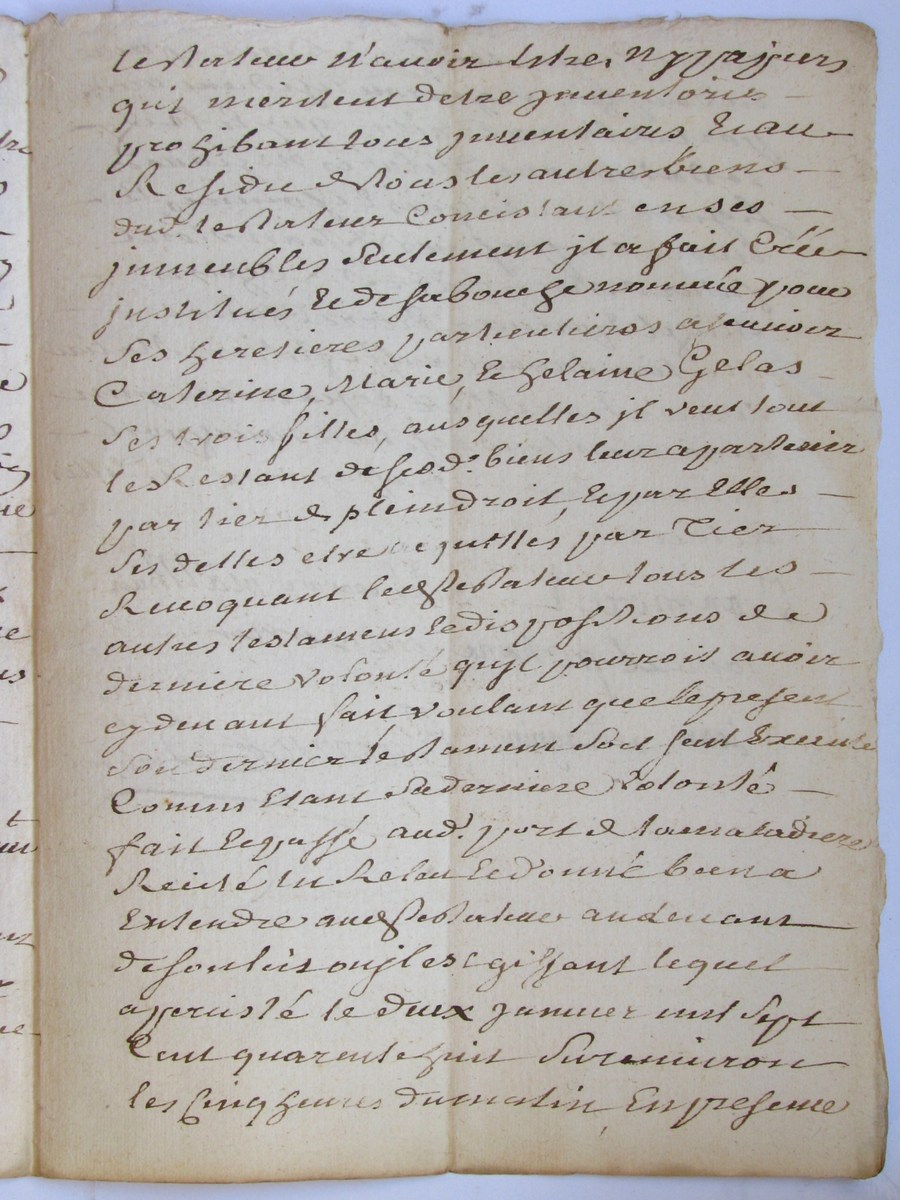 testateur n'avoir tiltre, ny papiers
quis meritent detre jnventoriés
prohibant tous jnventaires Et au
Residu de tous les autres biens
dud. testateur Concistant en ses
jmmeubles seulement jl a fait Créé
jnstitués Et de sa bouche nommée pour
ses heretieres particulieres a scavoir
Caterine, Marie, Et helaine Gelas
ses trois filles, ausquelles jl veut tout
le Restant de sesd. biens leur apartenir
par tier de plein droit, Et par Elles
ses dettes etre acquittés par Tier
Revoquant led. testateur tous les
autres testamens Et dispositions de
derniere volonté qu'jl pourroit avoir
cy devant fait voulant que le present
son dernier testament soit seul Executé
Comm Etant sa derniere volonté
fait Et passé aud. port de la maladiere
Recité lu Releu Et donné bien a
Entendre aud. testateur au devant
de son lit ou jl est gissant lequel
a persisté le deux janvier mil sept
Cent quarente huit sur environ
les Cinq heures du matin, En presence